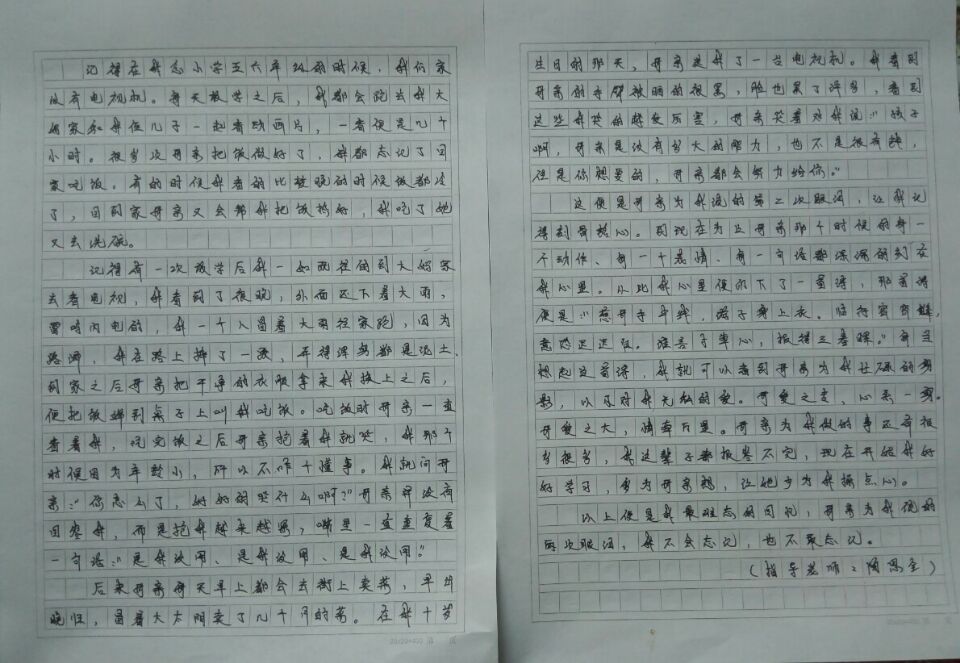 记得在我念小学五六年级的时候，我们家
没有电视机。每天放学之后，我都会跑去我大
妈家和我侄儿子一起看动画片，一看便是几个
小时。很多次母亲把饭做好了，我都忘记了回
家吃饭。有的时候我看的比较晚的时候饭都冷
了，回到家母亲又会帮我把饭热好，我吃了她
又去洗碗。
记得有一次放学后我一如既往的到大妈家
去看电视，我看到了很晚，外面还下着大雨，
雷鸣闪电的，我一个人冒着大雨往家跑，因为
路滑，我在路上摔了一跤，弄得浑身都是泥土。
到家之后母亲把干净的衣服拿来我换上之后，
便把饭端到桌子上叫我吃饭。吃饭时母亲一直
看着我，吃完饭之后母亲抱着我就哭，我那个
时候因为年龄小，所以不咋个懂事。我就问母
亲：“你怎么了，好好的哭什么啊？”母亲并没有
回答我，而是抱我越来越紧，嘴里一直重复着
一句话：“是我没用、是我没用、是我没用。”
后来母亲每天早上都会去街上卖菜，早出
晚归，冒着大太阳卖了几个月的菜。在我十岁
生日的那天，母亲送我了一台电视机。我看到
母亲的手臂被晒的很黑，脸也黑了许多，看到
这些我哭的好是厉害，母亲笑着对我说：“孩子
啊，母亲是没有多大的能力，也不是很有钱，
但是你想要的，母亲都会努力给你。”
这便是母亲为我流的第二次眼泪，让我记
得刻骨铭心。到现在为止母亲那个时候的每一
个动作、每一个表情、每一句话都深深的刻在
我心里。从此我心里便印下了一首诗，那首诗
便是：“慈母手中线，游子身上衣。临行密密缝，
意恐迟迟归。谁言寸草心，报得三春晖。”每当
想起这首诗，我就可以看到母亲为我忙碌的身
影，以及对我无私的爱。母爱之美，心系一身。
母爱之大，情牵万里。母亲为我做的事还有很
多很多，我这辈子都报答不完，现在开始我好
好学习，多为母亲想，让她少为我操点心。
以上便是我最难忘的回忆，母亲为我流的
两次眼泪，我不会忘记，也不敢忘记。
（指导老师：周恩全）
20×20=400 第 页
20×20=400 第 页